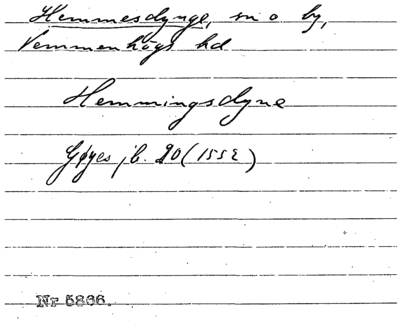 Hemmesdynge, sn o by,
Vemmenhögs hd
Hemmingsdyne
Gøyes jb. 20 (1552)
Nr 5866.